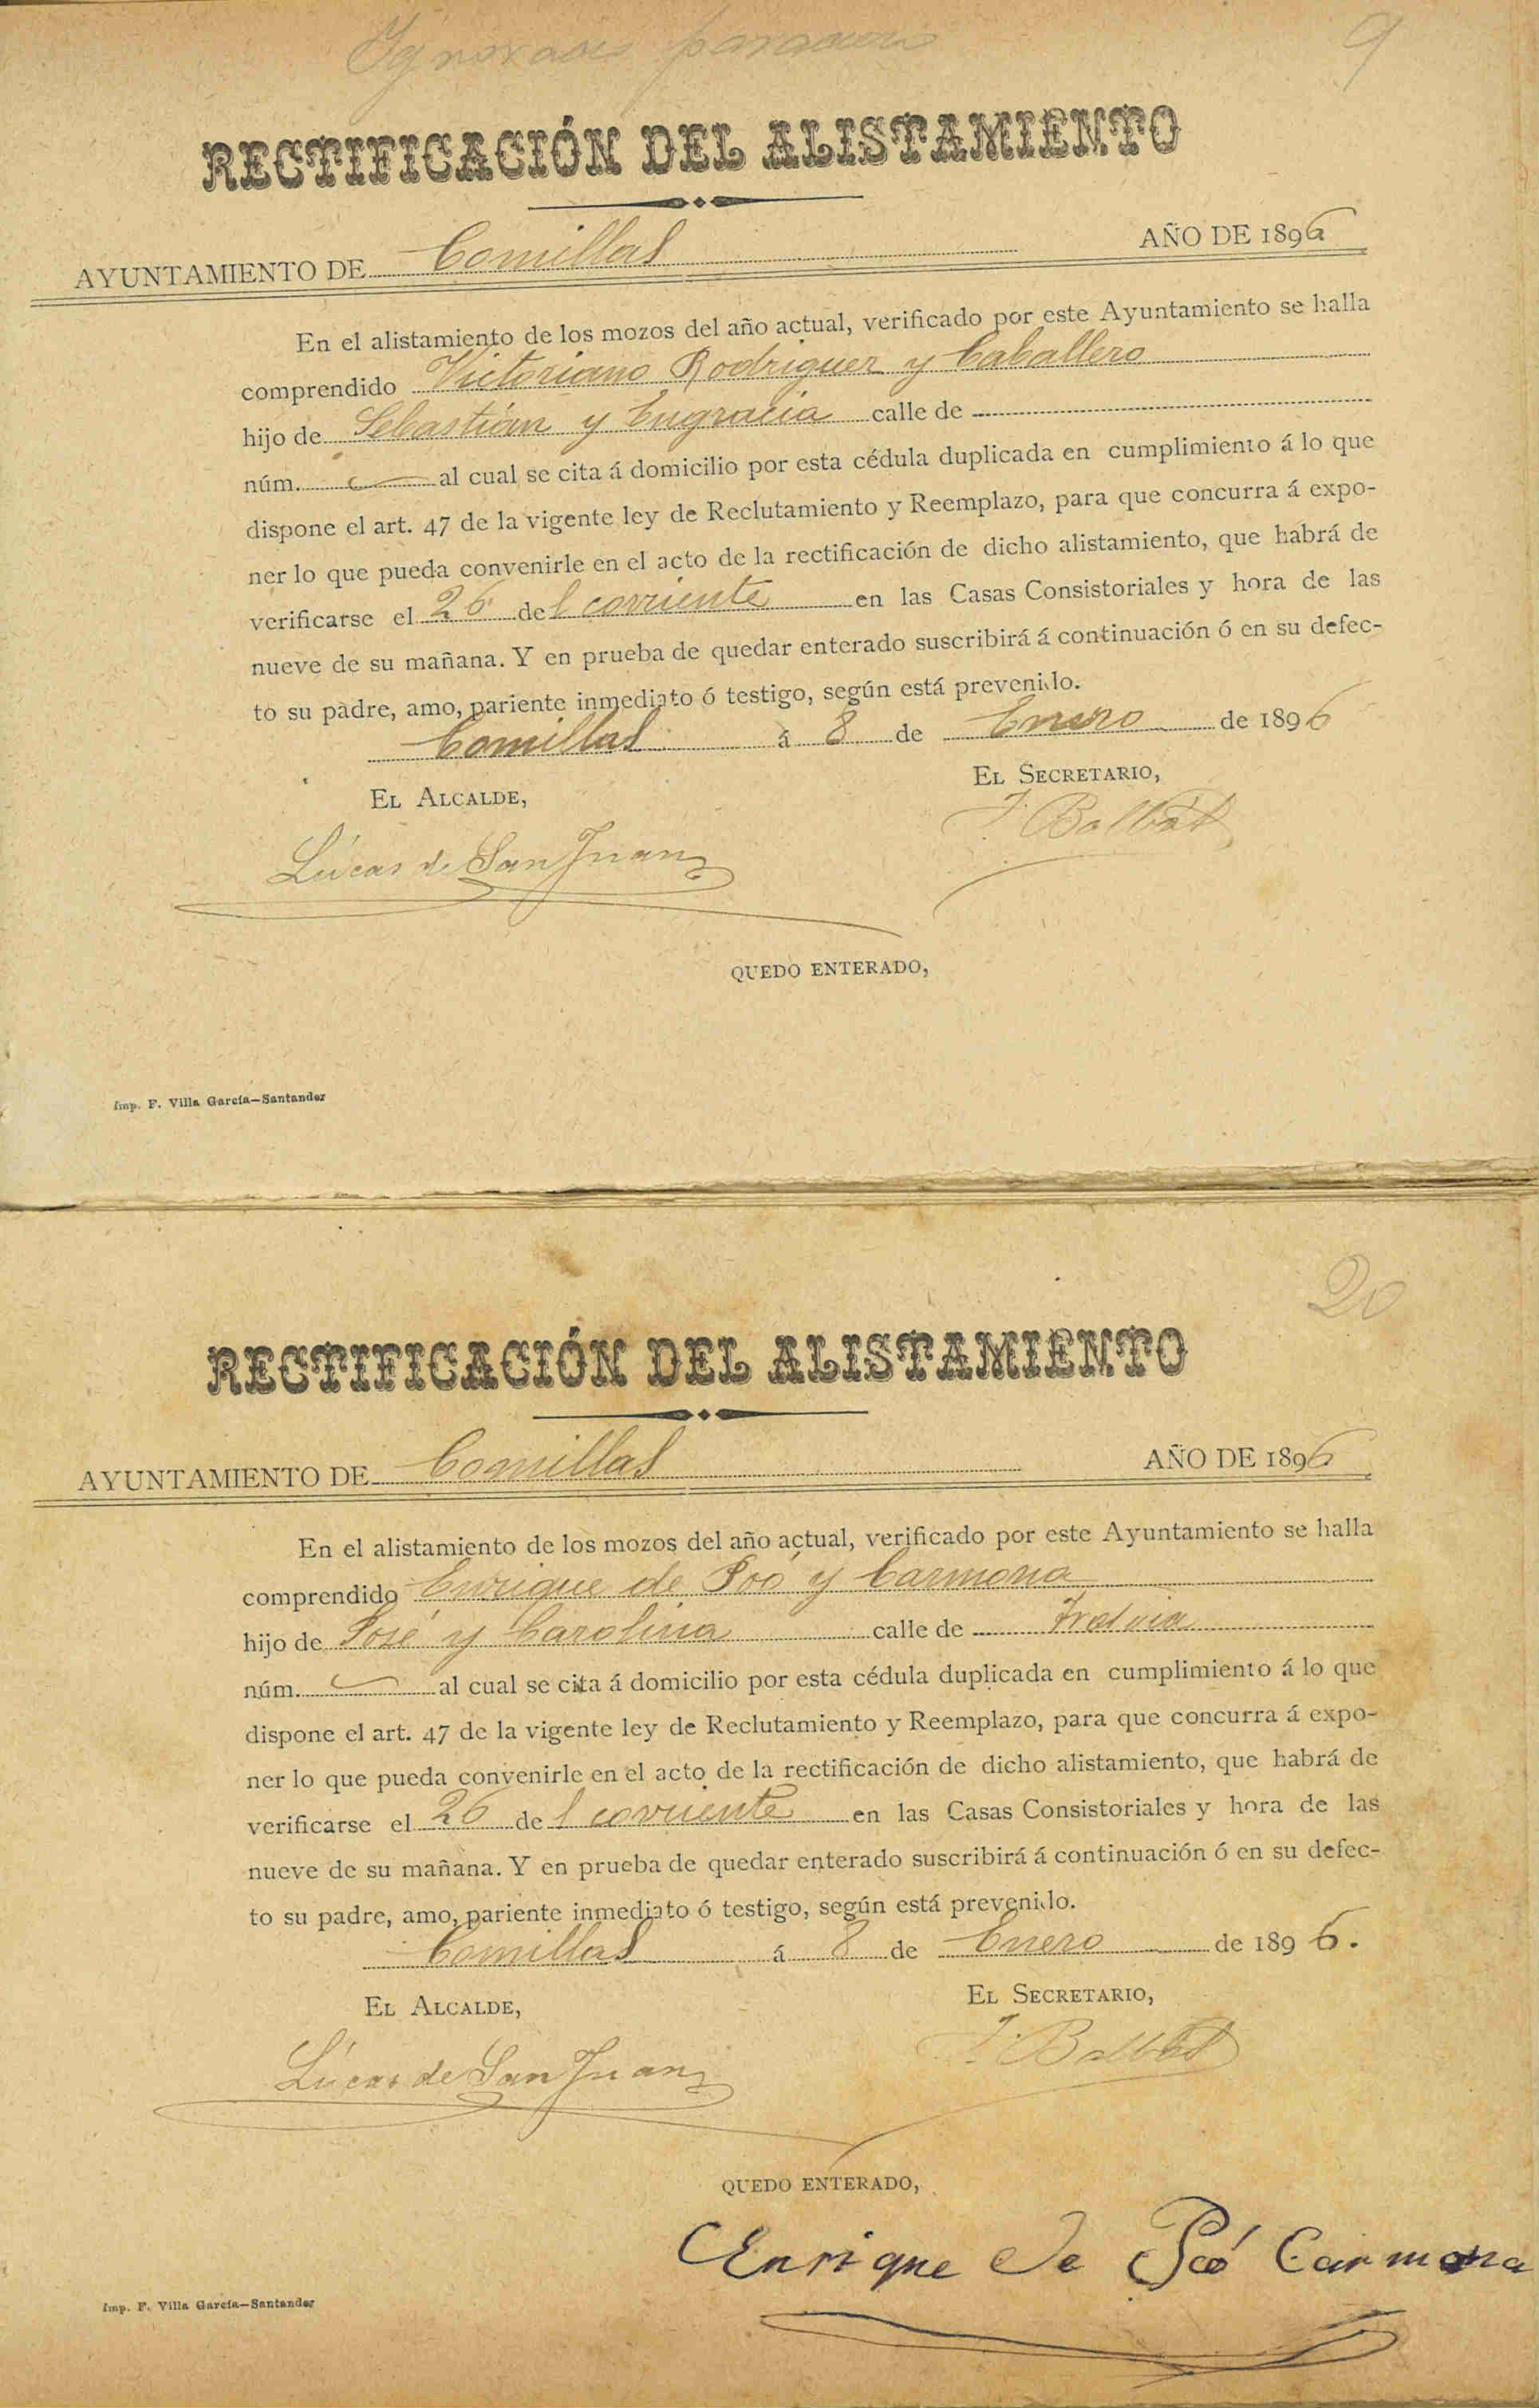 Ignorado paradero
9
RECTIFICACIÓN DEL ALISTAMIENTO
AYUNTAMIENTO DE Comillas AÑO DE 1896
En el alistamiento de los mozos del año actual, verificado por este Ayuntamiento se halla
comprendido Victoriano Rodriguez y Caballero
hijo de Sebastián y Engracia calle de
núm. al cual se cita á domicilio por esta cédula duplicada en cumplimiento á lo que
dispone el art. 47 de la vigente ley de Reclutamiento y Reemplazo, para que concurra á expo-
ner lo que pueda convenirle en el acto de la rectificación de dicho alistamiento, que habrá de
verificarse el 26 del corriente en las Casas Consistoriales y hora de las
nueve de su mañana. Y en prueba de quedar enterado suscribirá á continuación ó en su defec-
to su padre, amo, pariente inmediato ó testigo, según está prevenido.
Comillas á 8 de Enero de 1896
EL ALCALDE, EL SECRETARIO,
Lúcas de San Juan
QUEDO ENTERADO,
Imp. F. Villa García—Santander
20
RECTIFICACIÓN DEL ALISTAMIENTO
AYUNTAMIENTO DE Comillas AÑO DE 1896
En el alistamiento de los mozos del año actual, verificado por este Ayuntamiento se halla
comprendido Enrique de Poó y Carmona
hijo de José y Carolina calle de
núm. al cual se cita á domicilio por esta cédula duplicada en cumplimiento á lo que
dispone el art. 47 de la vigente ley de Reclutamiento y Reemplazo, para que concurra á expo-
ner lo que pueda convenirle en el acto de la rectificación de dicho alistamiento, que habrá de
verificarse el 26 del corriente en las Casas Consistoriales y hora de las
nueve de su mañana. Y en prueba de quedar enterado suscribirá á continuación ó en su defec-
to su padre, amo, pariente inmediato ó testigo, según está prevenido.
Comillas á 8 de Enero de 1896.
EL ALCALDE, EL SECRETARIO,
Lúcas de San Juan
QUEDO ENTERADO,
Enrique de Poó Carmona
Imp. F. Villa García—Santander